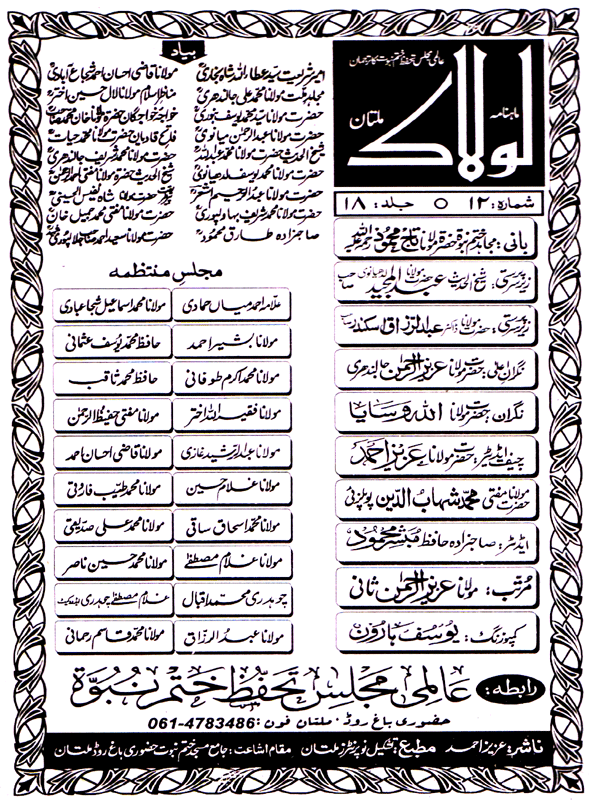 عالمی مجلس تحفظ ختم نبوت کا ترجمان
ماہنامہ
لولاک
ملتان
شمارہ: ۱۲ ○ جلد: ۱۸
بانی: مجاہد ختم نبوۃ حضرۃ مولانا تاج محمود رحمۃ اللہ علیہ
زیر سرپرستی: شیخ الحدیث حضرت مولانا عبدالمجید لدھیانوی صاحب
زیر سرپرستی: حضرت مولانا ڈاکٹر عبدالرزاق اسکندر
نگران اعلی: حضرت مولانا عزیز الرحمن جالندھری
نگران: حضرت مولانا اللہ وسایا
چیف ایڈیٹر: حضرت مولانا عزیز احمد
حضرت مولانا مفتی محمد شہاب الدین پوپلزئی
ایڈیٹر: صاحبزادہ حافظ مبشر محمود
مرتب: مولانا عزیز الرحمن ثانی
کمپوزنگ: یوسف ہارون
بیاد
امیر شریعت سید عطاء اللہ شاہ بخاری
مولانا قاضی احسان احمد شجاع آبادی
مجاہد ملت مولانا محمد علی جالندھری
مناظر اسلام مولانا لال حسین اختر
حضرت مولانا سید محمد یوسف بنوری
خواجہ خواجگان حضرۃ مولانا خان محمد صاحب
حضرت مولانا عبدالرحمن میانوی
فاتح قادیان حضرۃ مولانا محمد حیات
شیخ الحدیث حضرت مولانا محمد عبداللہ
حضرت مولانا محمد شریف جالندھری
حضرت مولانا محمد یوسف لدھیانوی
شیخ الحدیث حضرۃ مولانا مفتی احمد الرحمن
حضرت مولانا عبدالرحیم اشعر
حضرت مولانا شاہ نفیس الحسینی
حضرت مولانا محمد شریف بہاولپوری
حضرت مولانا مفتی محمد جمیل خان
صاحبزادہ طارق محمود
حضرت مولانا سعید احمد صاحب جلالپوری
مجلس منتظمہ
علامہ احمد میاں حمادی
مولانا محمد اسماعیل شجاعبادی
مولانا بشیر احمد
حافظ محمد یوسف عثمانی
مولانا محمد اکرم طوفانی
حافظ محمد ثاقب
مولانا فقیر اللہ اختر
مولانا مفتی حفیظ الرحمن
مولانا عبدالرشید غازی
مولانا قاضی احسان احمد
مولانا غلام حسین
مولانا محمد طیب فاروقی
مولانا محمد اسحاق ساقی
مولانا محمد علی صدیقی
مولانا غلام مصطفےٰ
مولانا محمد حسین ناصر
چوہدری محمد اقبال
غلام مصطفےٰ چوہدری ایڈووکیٹ
مولانا عبدالرزاق
مولانا محمد قاسم رحمانی
رابطہ: عالمی مجلس تحفظ ختم نبوۃ
حضوری باغ روڈ، ملتان فون: 061-4783486
ناشر: عزیز احمد مطبع: تشکیل نو پرنٹرز ملتان مقام اشاعت: جامع مسجد ختم نبوت حضوری باغ روڈ ملتان